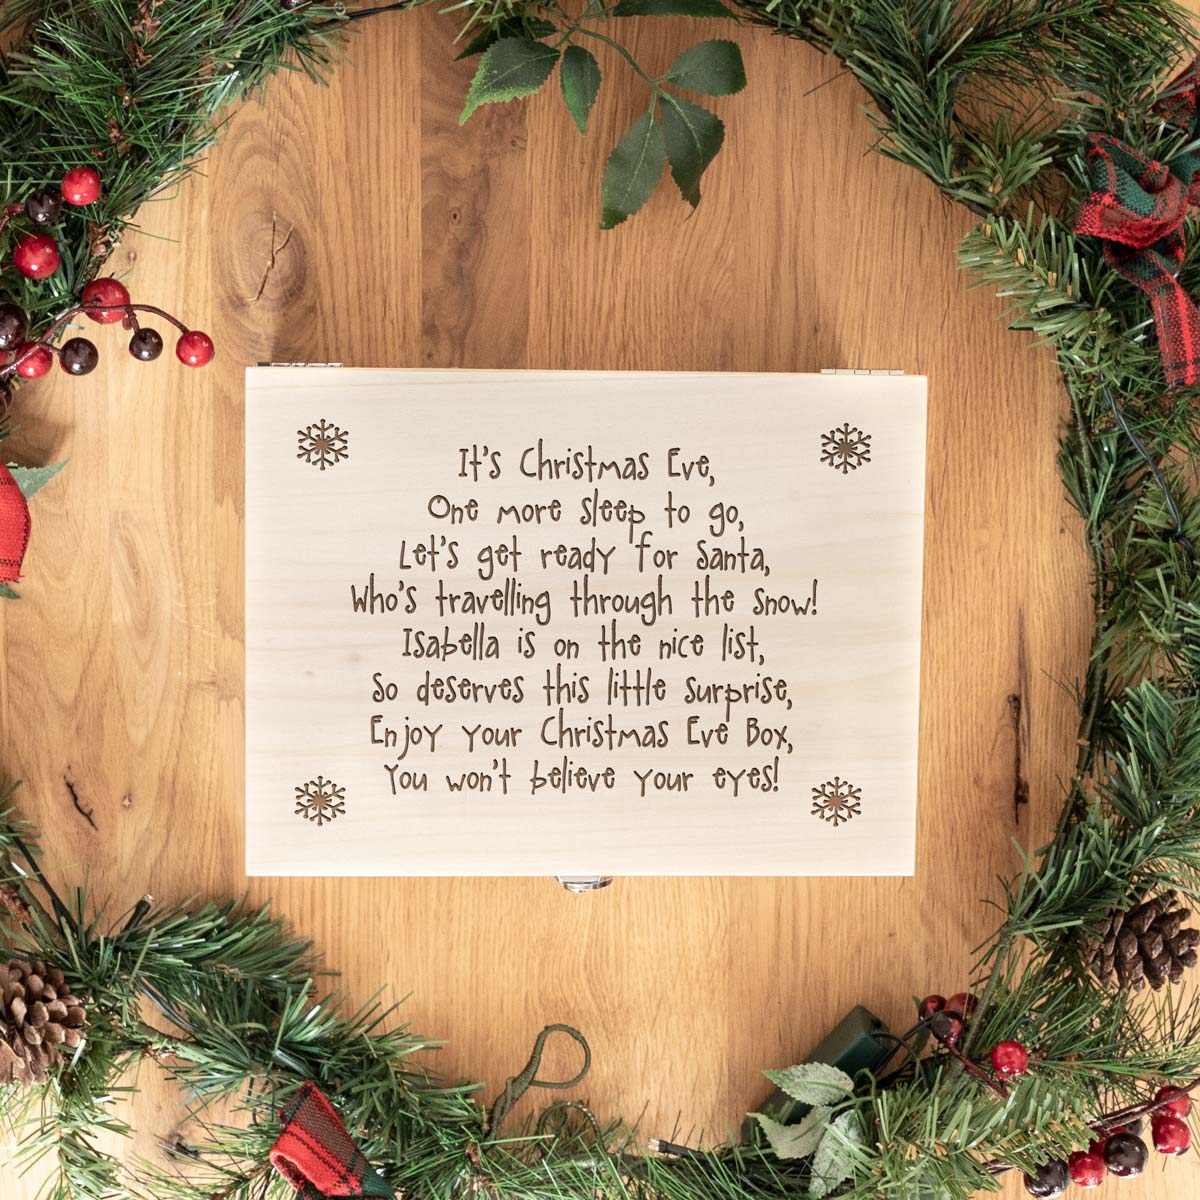 It's Christmas Eve,
One more sleep to go,
Let's get ready for Santa,
Who's travelling through the snow!
Isabella is on the nice list,
So deserves this little surprise,
Enjoy your Christmas Eve Box,
You won't believe your eyes!